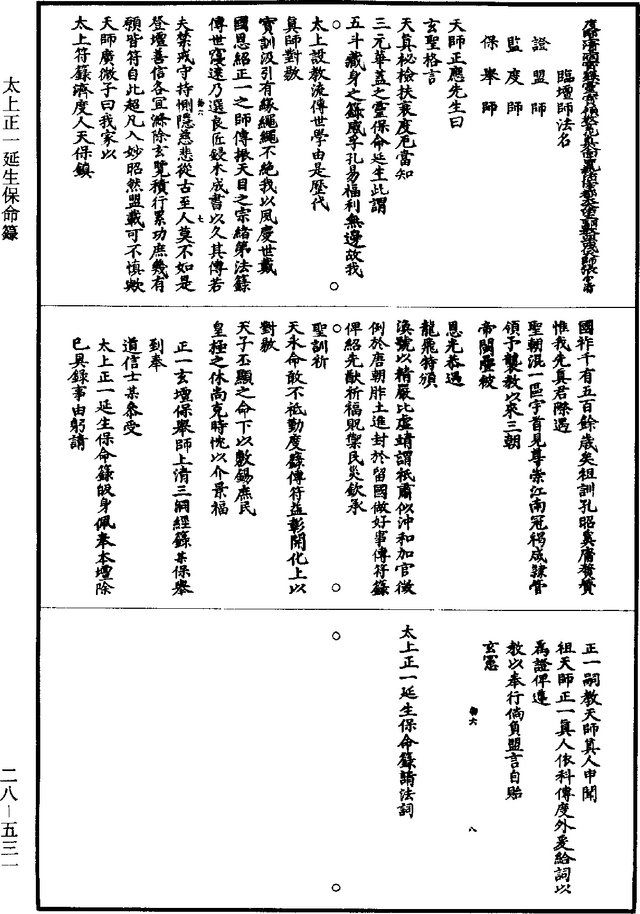 臨壇師法名
證盟師
監度師
保舉師
天師正應先生曰
玄聖格言
天真祕檢扶衰度厄當知
三元華蓋之靈保命延生此謂
五斗護身之籙威尊孔易福利無邊故我
太上設教流傳世學由是歷代
真師對敭
寶訓汲引有緣繩繩不絕我以風慶世戴
國恩紹正一之師傳振天目之宗緒第法籙
傳世寖遠乃選良匠鋟木成書以久其傳若
夫禁戒守持惻隱慈悲從古至人莫不如是
登壇善信各宜滌除玄覽積行累功庶幾有
願皆符自此超凡入妙昭然盟載可不慎歟
天師廣微子曰我家以
太上符籙濟度人天保鎮
國祚千有五百餘歲矣祖訓孔昭奚庸贅贊
惟我先真君際遇
聖朝混一區宇首見尊崇江南冠褐咸隸管
領予襲教以來三朝
帝闕屢被
恩光恭遇
龍飛特頒
渙號以精嚴比虛靖謂祇肅似沖和加官徵
例於唐朝胙土進封於留國做好事傳符籙
俾紹先猷祈福貺禦民災欽承
聖訓祈
天永命敢不祗勤度籙傳符益彰開化上以
對敭
天子丕顯之命下以敷錫庶民
皇極之休尚克時忱以介景福
正一玄壇保舉師上清三洞經籙某保舉
到奉
道信士某叅受
太上正一延生保命籙皈身佩奉本壇除
已具錄事由躬請
正一嗣教天師真人申聞
祖天師正一真人依科傳度外爰給詞以
為證俾遵
教以奉行倘負盟言自貽
玄憲
太上正一延生保命籙請法詞
太上正一延生保命籙
二八—五三一